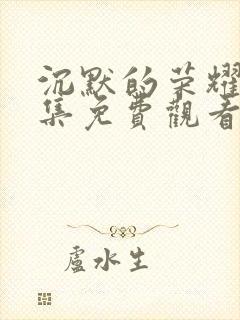 沉默的荣耀
集免費觀看
盧水生